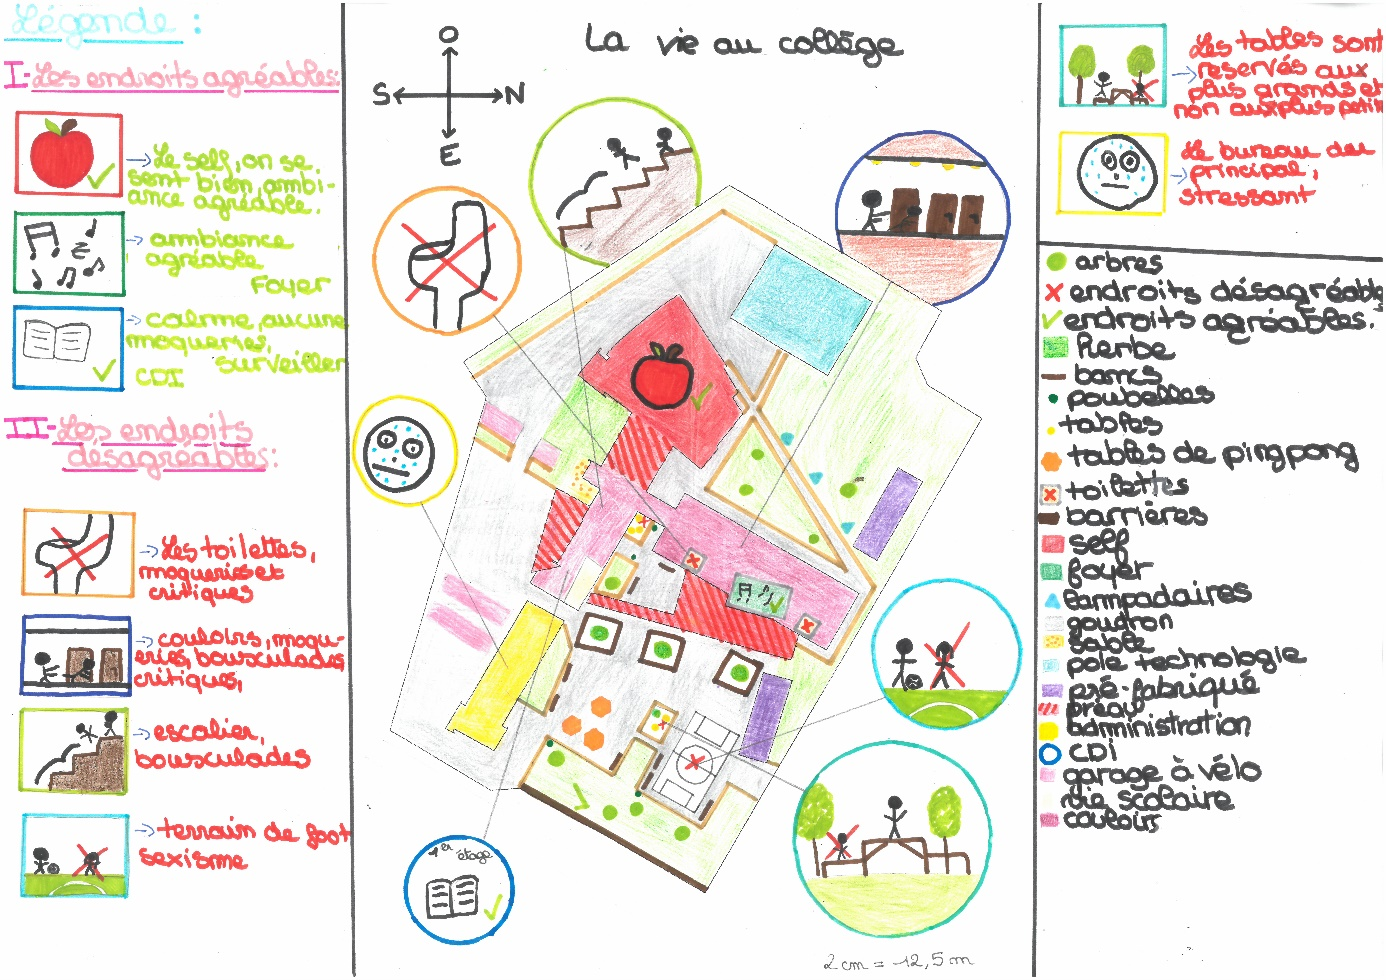 Légende :
I-Les endroits agréables:
→Le self, on se
sent bien, ambi-
ance agréable.
→ambiance
agréable
Foyer
→calme, aucune
moqueries,
surveiller
CDI
II-Les endroits
désagréables:
→Les toilettes,
moqueries et
critiques
→couloirs, moqu-
eries, bousculades
critiques,
→escalier,
bousculades
→terrain de foot
sexisme
La vie au collège
O
S
N
E
1er étage
2 cm = 12,5 m
→Les tables sont
reservés aux
plus grands et
non aux plus petits
→Le bureau du
principal,
stressant
arbres
endroits désagréables
endroits agréables.
herbe
bancs
poubelles
tables
tables de pingpong
toilettes
barrières
self
foyer
lampadaires
goudron
sable
pole technologie
pré-fabriqué
préau
administration
CDI
garage à vélo
vie scolaire
couloirs